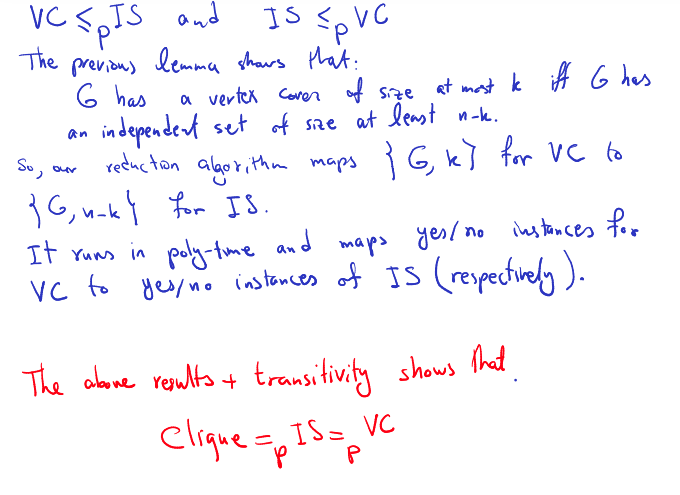 VC ≤p IS and IS ≤p VC
The previous lemma shows that:
G has a vertex cover of size at most k iff G has
an independent set of size at least n-k.
So, our reduction algorithm maps {G, k} for VC to
{G, n-k} for IS.
It runs in poly-time and maps yes/no instances for
VC to yes/no instances of IS (respectively).
The above results + transitivity shows that.
Clique =p IS =p VC